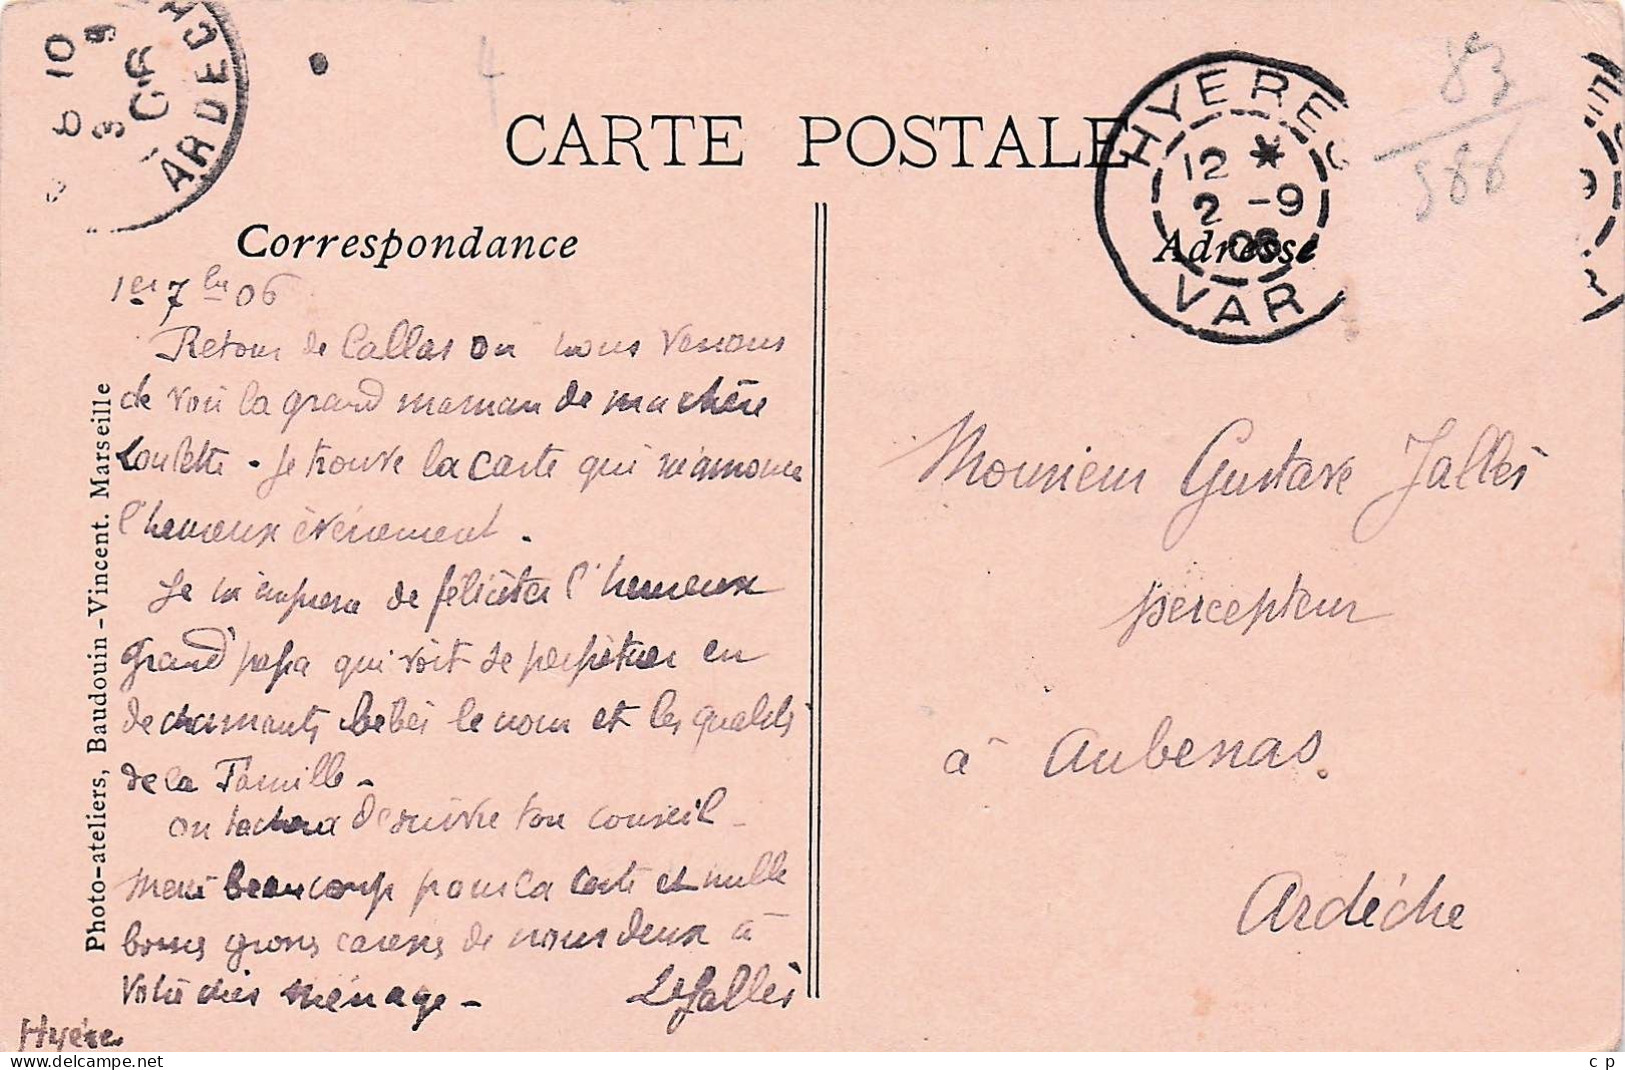 6 10
3 9
ARDECH
CARTE POSTALE
HYERES
12 *
2 -9
06
VAR
83
986
Correspondance
Adresse
1er 7bre 06
Retour de Callas où nous venons
de voir la grand maman de ma chère
Loulette - Je trouve la carte qui m'annonce
l'heureux évènement.
Je m'empresse de féliciter l'heureux
grand' papa qui voit se perpétuer en
de charmants bébés le nom et les qualités
de la Famille -
on tachera de suivre ton conseil -
Merci beaucoup pour la carte et mille
bonnes grosses caresses de nous deux à
votre cher ménage -
Jallès
Hyères
Photo-ateliers, Baudouin-Vincent. Marseille
Monsieur Gustave Jallès
percepteur
à Aubenas.
Ardèche
c p